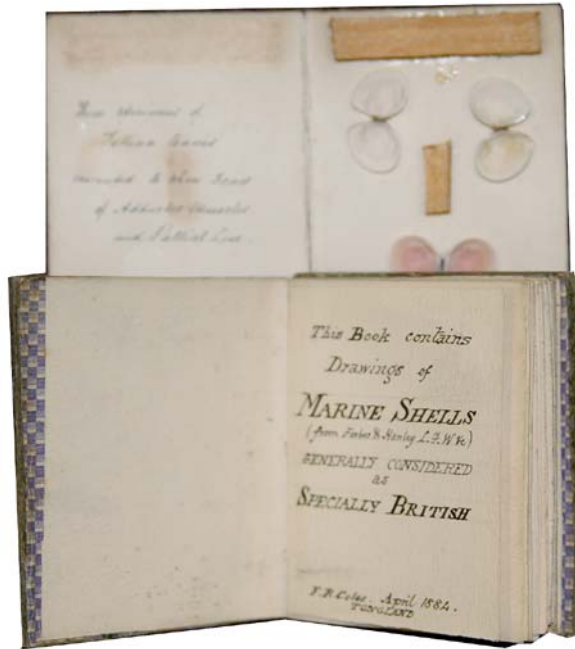 These specimens of
Tellina
mounted to show Scars
of Adductor Muscles
and Pallial Line.
This Book contains
Drawings of
MARINE SHELLS
(from Forbes & Hanley L.F.W &c)
GENERALLY CONSIDERED
as
SPECIALLY BRITISH
F. R. Coles. April 1884.
TONGLAND